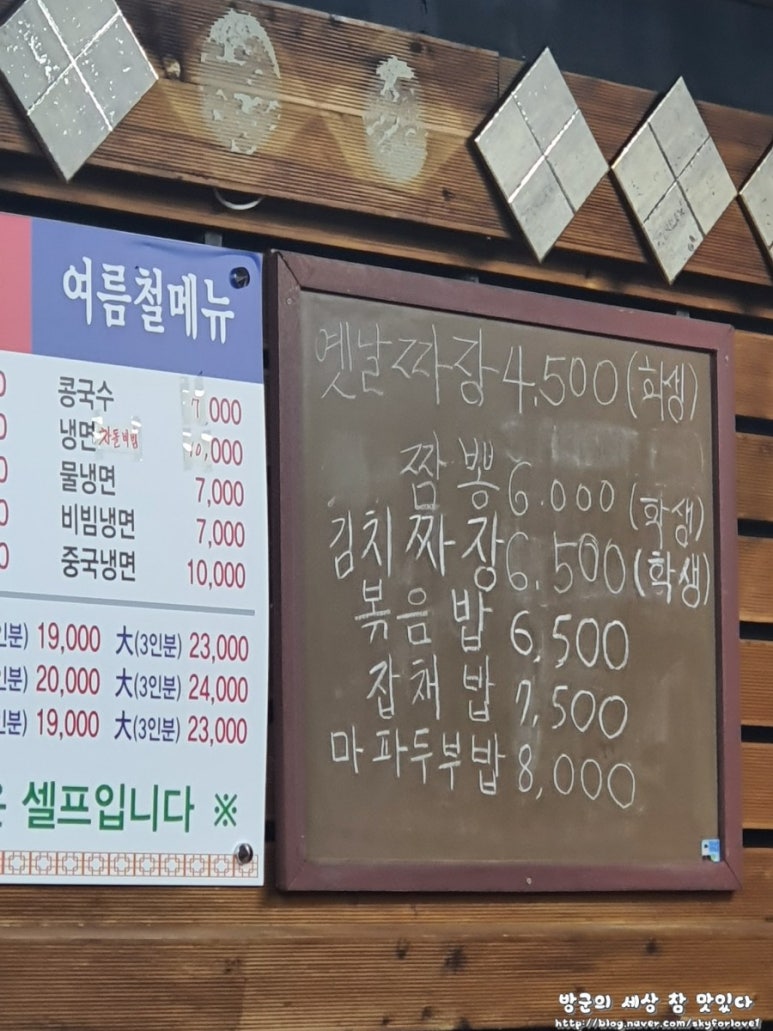 여름철메뉴
0 콩국수 7,000
0 냉면 차돌비빔 10,000
0 물냉면 7,000
0 비빔냉면 7,000
0 중국냉면 10,000
인분) 19,000 大(3인분) 23,000
인분) 20,000 大(3인분) 24,000
인분) 19,000 大(3인분) 23,000
은 셀프입니다 ※
옛날짜장 4,500 (학생)
짬뽕 6.000 (학생)
김치짜장 6.500 (학생)
볶음밥 6,500
잡채밥 7,500
마파두부밥 8,000
방군의 세상 참 맛있다
http://blog.naver.com/skyforlove1